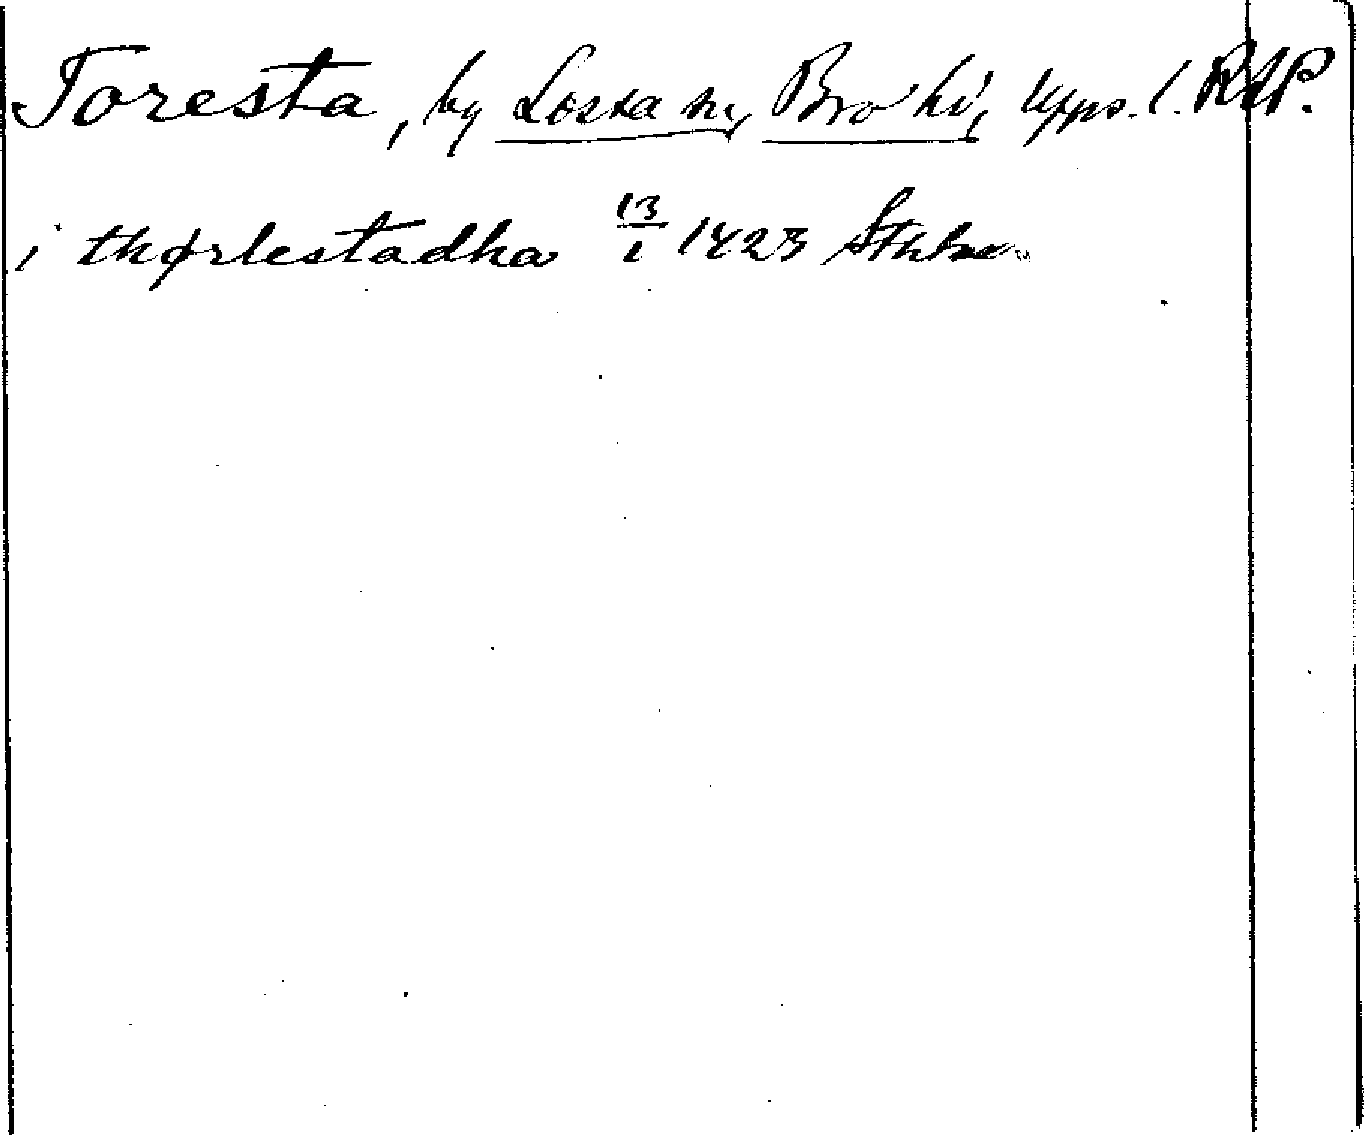 Toresta, by Låssa sn, Bro hd, Upps. l. RAP.
i thørlestadha 13/1 1423 Sthlm